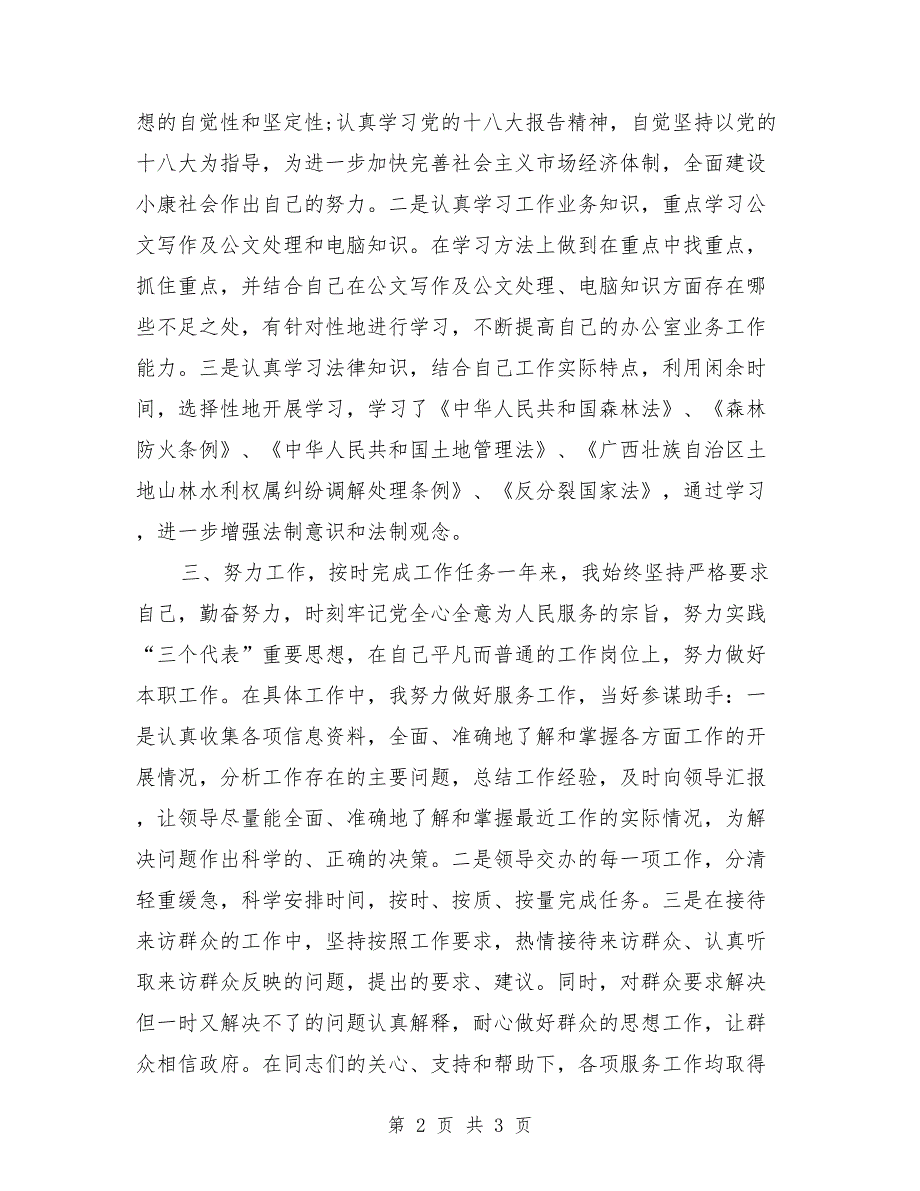 想的自觉性和坚定性;认真学习党的十八大报告精神，自觉坚持以党的
十八大为指导，为进一步加快完善社会主义市场经济体制，全面建设
小康社会作出自己的努力。二是认真学习工作业务知识，重点学习公
文写作及公文处理和电脑知识。在学习方法上做到在重点中找重点，
抓住重点，并结合自己在公文写作及公文处理、电脑知识方面存在哪
些不足之处，有针对性地进行学习，不断提高自己的办公室业务工作
能力。三是认真学习法律知识，结合自己工作实际特点，利用闲余时
间，选择性地开展学习，学习了《中华人民共和国森林法》、《森林
防火条例》、《中华人民共和国土地管理法》、《广西壮族自治区土
地山林水利权属纠纷调解处理条例》、《反分裂国家法》，通过学习
，进一步增强法制意识和法制观念。
三、努力工作，按时完成工作任务一年来，我始终坚持严格要求
自己，勤奋努力，时刻牢记党全心全意为人民服务的宗旨，努力实践
“三个代表”重要思想，在自己平凡而普通的工作岗位上，努力做好
本职工作。在具体工作中，我努力做好服务工作，当好参谋助手：一
是认真收集各项信息资料，全面、准确地了解和掌握各方面工作的开
展情况，分析工作存在的主要问题，总结工作经验，及时向领导汇报
，让领导尽量能全面、准确地了解和掌握最近工作的实际情况，为解
决问题作出科学的、正确的决策。二是领导交办的每一项工作，分清
轻重缓急，科学安排时间，按时、按质、按量完成任务。三是在接待
来访群众的工作中，坚持按照工作要求，热情接待来访群众、认真听
取来访群众反映的问题，提出的要求、建议。同时，对群众要求解决
但一时又解决不了的问题认真解释，耐心做好群众的思想工作，让群
众相信政府。在同志们的关心、支持和帮助下，各项服务工作均取得
第 2 页 共 3 页